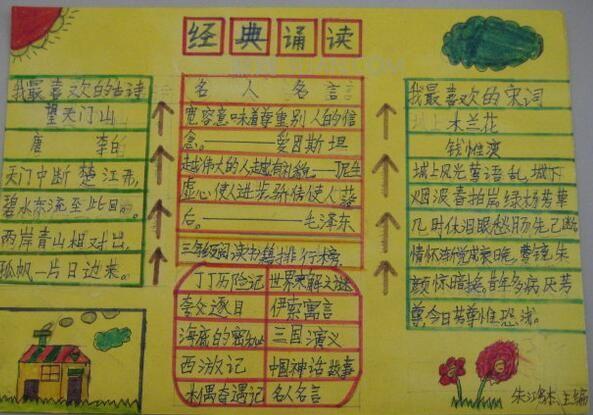 经典诵读
我最喜欢的古诗
望天门山
唐 李白
天门中断楚江开,
碧水东流至此回。
两岸青山相对出,
孤帆一片日边来。
名人名言
宽容意味道尊重别人的信
念。——爱因斯坦
越伟大的人越有礼貌——丁尼生
虚心使人进步骄傲使人落
后。——毛泽东
三年级阅读书籍排行榜
丁丁历险记 世界未解之谜
夸父逐日 伊索寓言
海底的密 三国演义
西游记 中国神话故事
木偶奇遇记 名人名言
我最喜欢的宋词
木兰花
钱惟演
城上风光莺语乱,城下
烟波春拍岸绿杨芳草
几时休泪眼愁肠先已断
情怀渐觉成衰晚,鸾镜朱
颜惊暗换。昔年多病厌芳
尊,今日芳尊惟恐浅。
主编